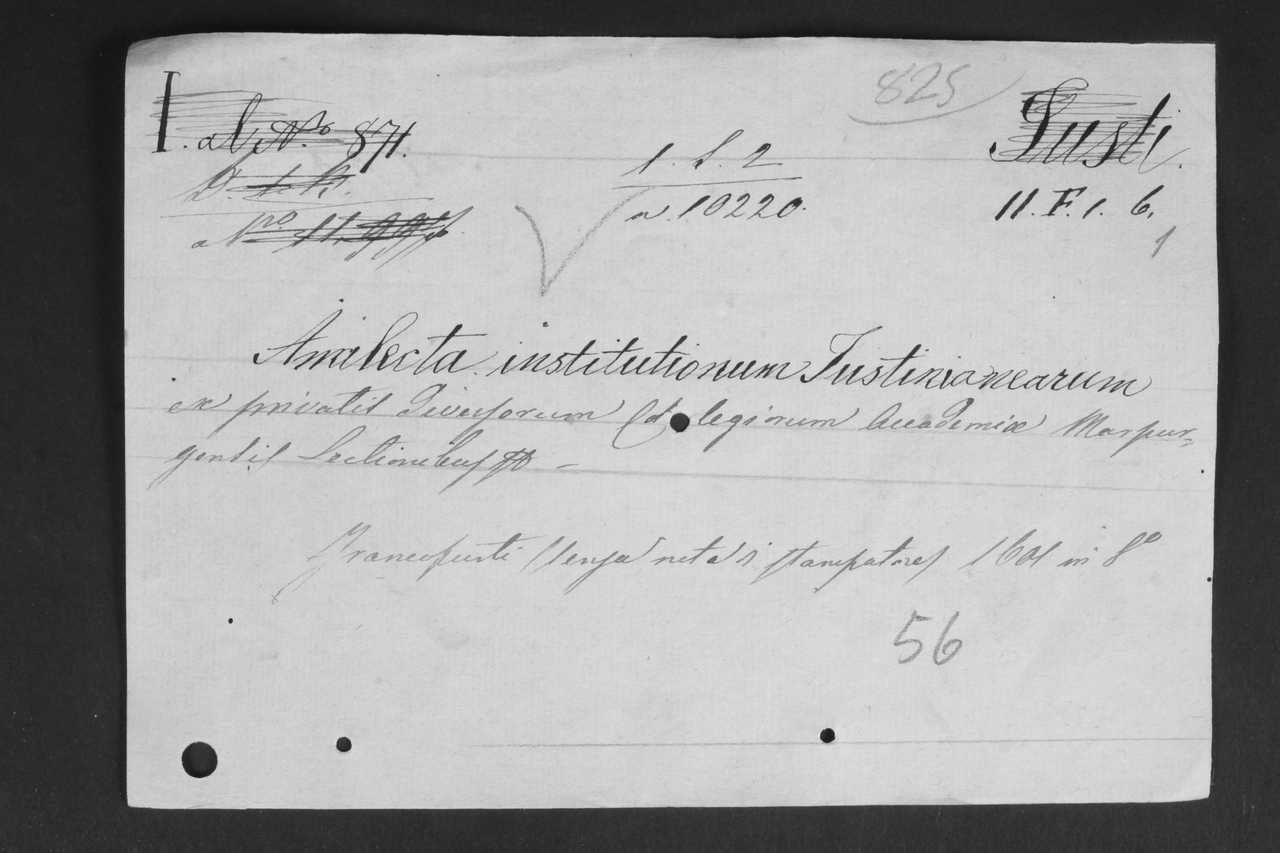 825
I. al No 871.
Justi.
1. S. 2
a 10220.
11. F. 1. 6.
1
Analecta institutionum Justinianearum
ex privatis diversorum Collegiorum Academiæ Marpur=
gensis Lectionibus
Francofurti (senza nota di stampatore) 1601 in 8º
56